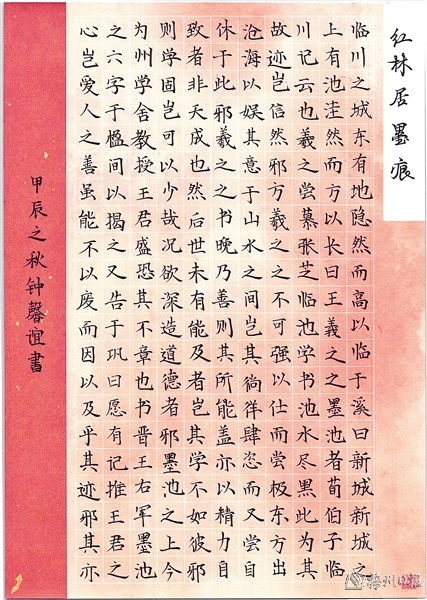 红林居墨痕
临川之城东有地隐然而高以临于溪曰新城新城之
上有池洼然而方以长曰王羲之之墨池者荀伯子临
川记云也羲之尝慕张芝临池学书池水尽黑此为其
故迹岂信然邪方羲之之不可强以仕而尝极东方出
沧海以娱其意于山水之间岂其徜徉肆恣而又尝自
休于此邪羲之之书晚乃善则其所能盖亦以精力自
致者非天成也然后世未有能及者岂其学不如彼邪
则学固岂可以少哉况欲深造道德者邪墨池之上今
为州学舍教授王君盛恐其不章也书晋王右军墨池
之六字于楹间以揭之又告于巩曰愿有记推王君之
心岂爱人之善虽能不以废而因以及乎其迹邪其亦
甲辰之秋钟馨谊书
梧州日报